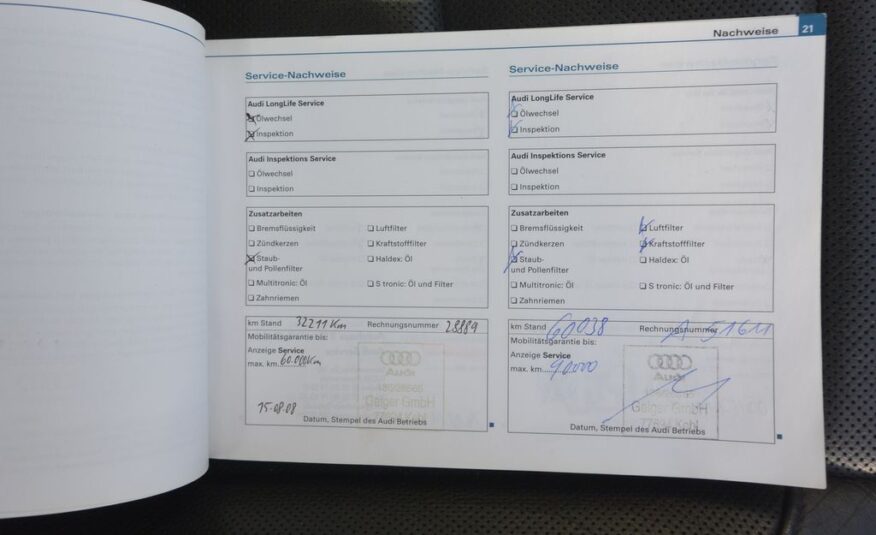 Nachweise 21
Service-Nachweise
Audi LongLife Service
Ölwechsel
Inspektion
Audi Inspektions Service
Ölwechsel
Inspektion
Zusatzarbeiten
Bremsflüssigkeit Luftfilter
Zündkerzen Kraftstofffilter
Staub- Haldex: Öl
und Pollenfilter
Multitronic: Öl S tronic: Öl und Filter
Zahnriemen
km Stand 32211 Km Rechnungsnummer 28889
Mobilitätsgarantie bis:
Anzeige Service
max. km 60.000 Km
Audi
Geiger GmbH
77694 Kehl
15.08.08
Datum, Stempel des Audi Betriebs
Service-Nachweise
Audi LongLife Service
Ölwechsel
Inspektion
Audi Inspektions Service
Ölwechsel
Inspektion
Zusatzarbeiten
Bremsflüssigkeit Luftfilter
Zündkerzen Kraftstofffilter
Staub- Haldex: Öl
und Pollenfilter
Multitronic: Öl S tronic: Öl und Filter
Zahnriemen
km Stand 60038 Rechnungsnummer A 51611
Mobilitätsgarantie bis:
Anzeige Service
max. km 90000
Audi
Geiger GmbH
77694 Kehl
Datum, Stempel des Audi Betriebs